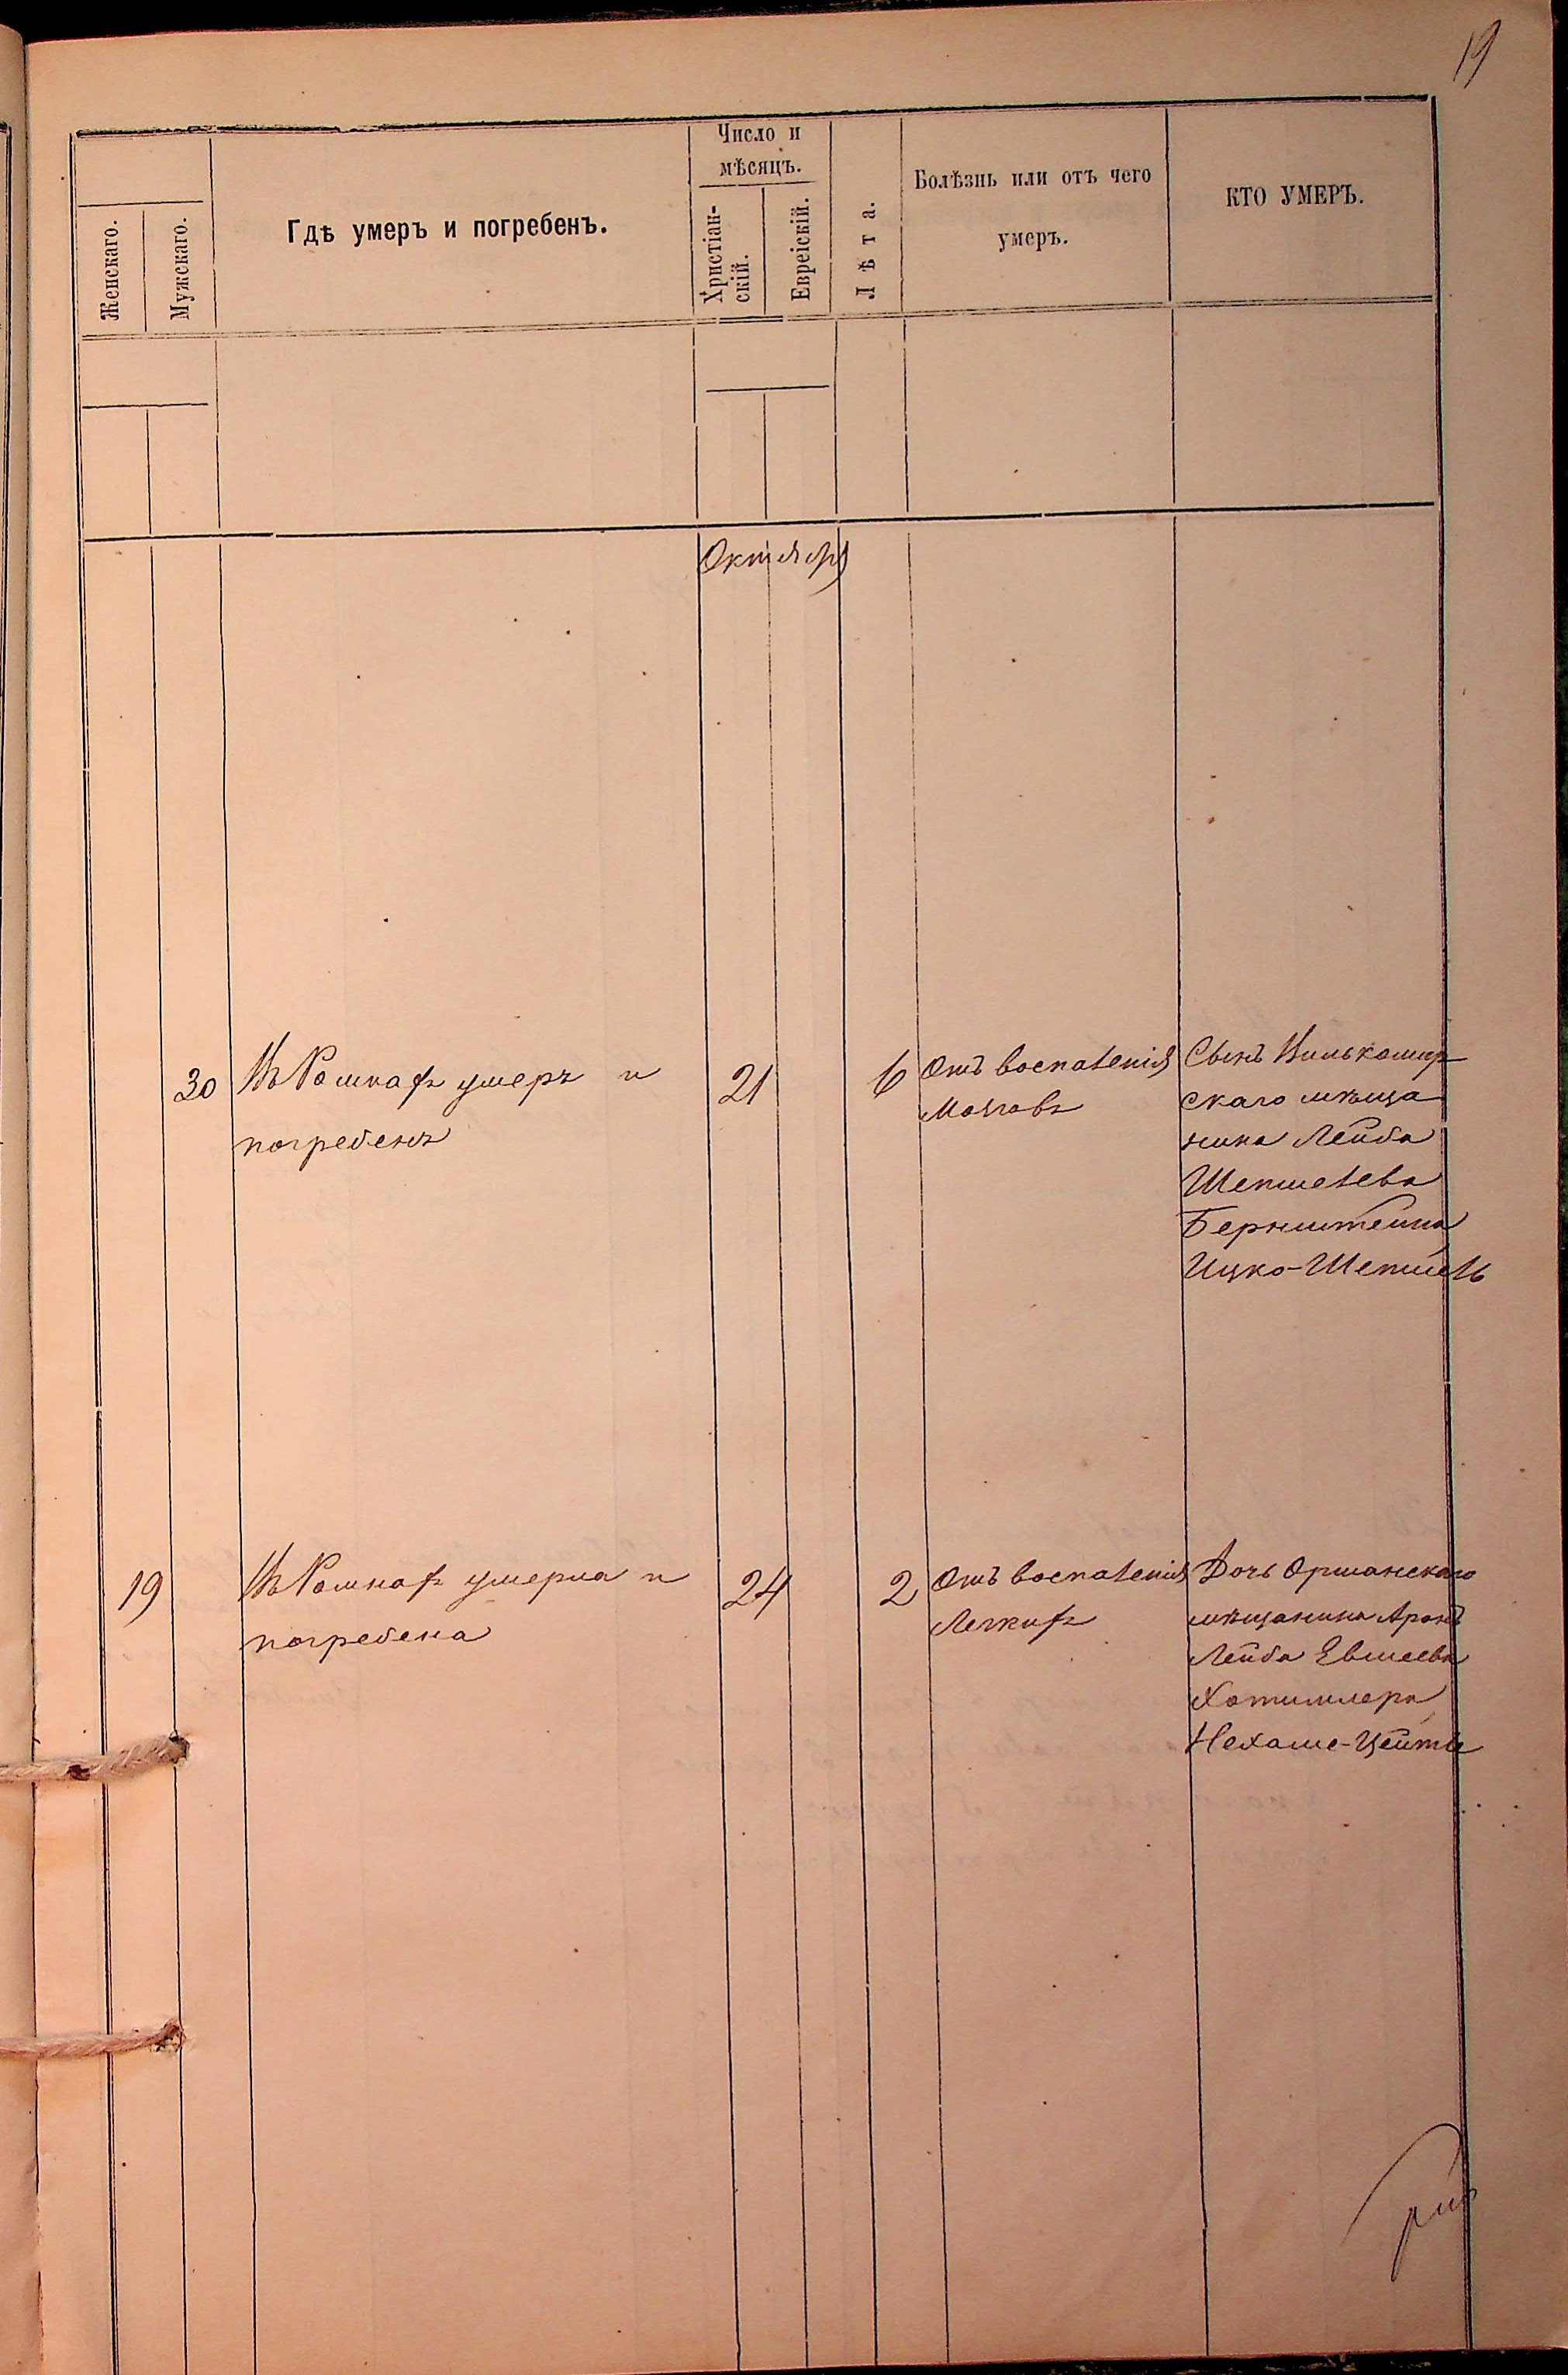 19
Женскаго.
Мужскаго.
Гдѣ умеръ и погребенъ.
Число и
мѣсяцъ.
Христіан-
скій.
Евреіскій.
Лѣта.
Болѣзнь или отъ чего
умеръ.
КТО УМЕРЪ.
Октября
30
Въ Ромнахъ умеръ и
погребенъ
21
6
Отъ воспаленія
Мозговъ
Сынъ Вилькомир
скаго мѣща
нина Лейба
Шепшелева
Бернштейна
Ицко-Шепшель
19
Въ Ромнахъ умерла и
погребена
24
2
Отъ воспаленія
Легкихъ
Дочь Оршанскаго
мѣщанина Аронъ
Лейба Евшеева
Хотимлера
Нехаме-Цейтле